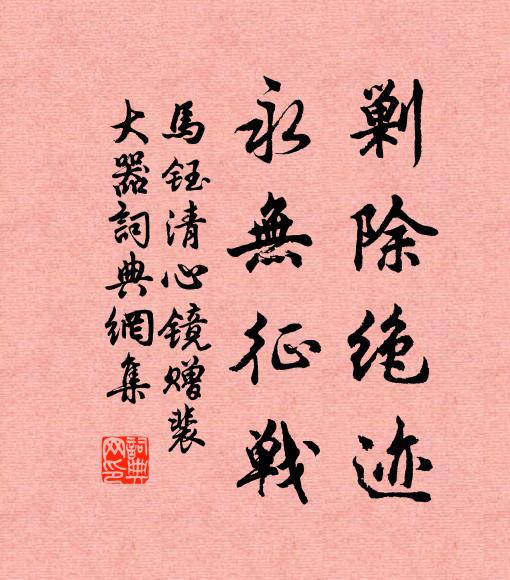 剿除绝迹
永無征戰
馬鈺清心镜赠裴
大器詞典網集
詞典
网印